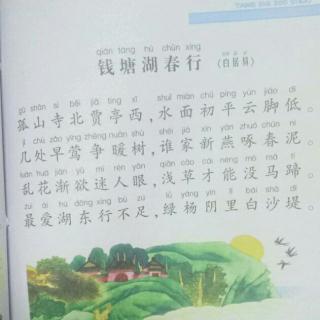 TANG SHI 300 SHOU
qián táng hú chūn xíng
钱塘湖春行 (白居易)
gū shān sì běi jiǎ tíng xī shuǐ miàn chū píng yún jiǎo dī
孤山寺北贾亭西,水面初平云脚低。
jǐ chù zǎo yīng zhēng nuǎn shù shéi jiā xīn yàn zhuó chūn ní
几处早莺争暖树,谁家新燕啄春泥。
luàn huā jiàn yù mí rén yǎn qiǎn cǎo cái néng mò mǎ tí
乱花渐欲迷人眼,浅草才能没马蹄。
zuì ài hú dōng xíng bù zú lǜ yáng yīn lǐ bái shā dī
最爱湖东行不足,绿杨阴里白沙堤。